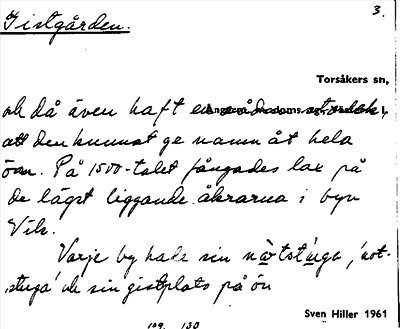 3.
Gistgården.
Torsåkers sn,
och då även haft en sådan storlek,
att den kunnat ge namn åt hela
ön. På 1500-talet fångades lax på
de lägst liggande åkrarna i byn
Vik.
Varje by hade sin nåtstuga, 'not-
stuga' och sin gistplats på ön
Sven Hiller 1961
109. 130